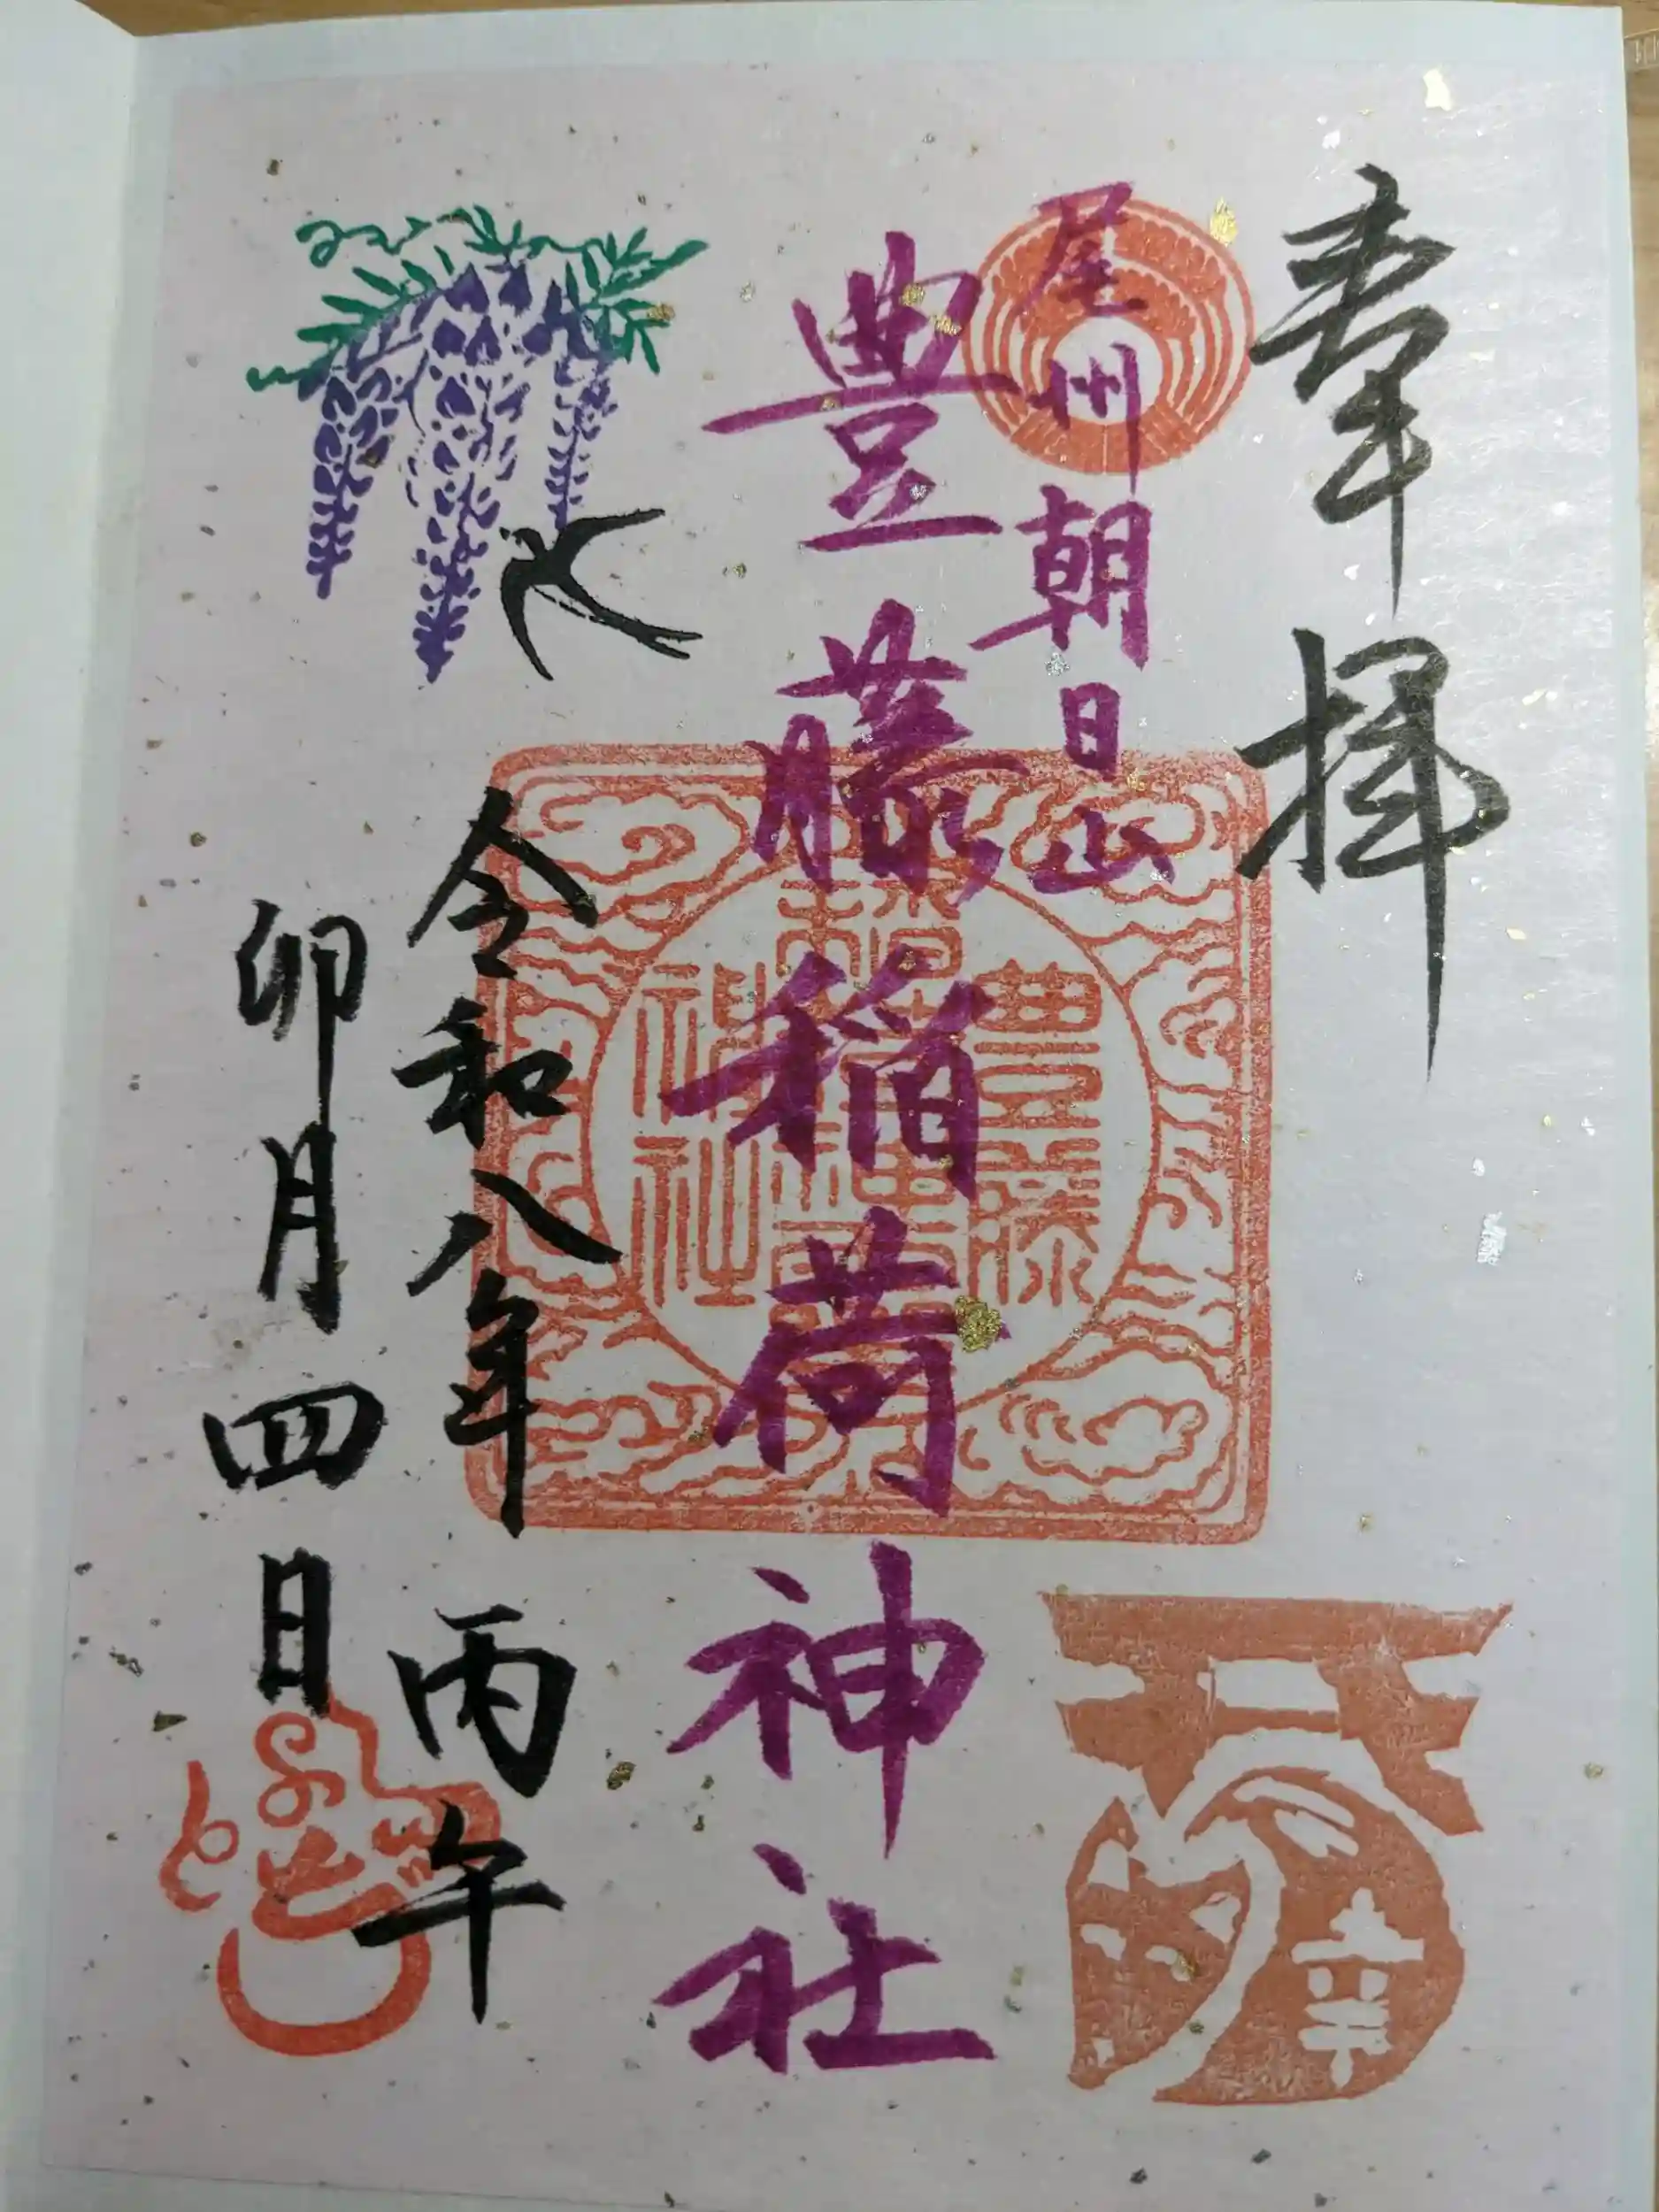 奉拝
尾州朝日山
豊藤稲荷神社
令和八年 丙午
卯月四日
豊藤
稲荷神社